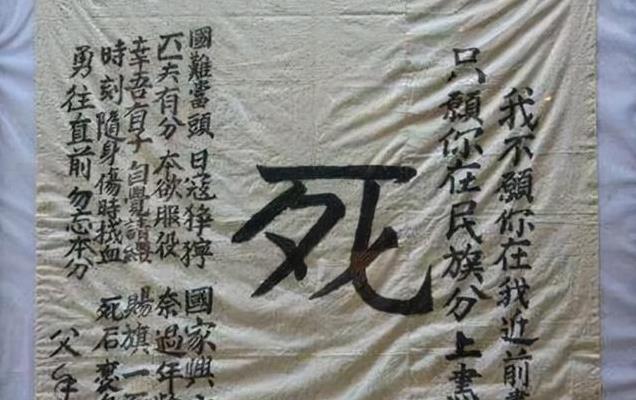 我不願你在我近前
只願你在民族分上
死
國難當頭 日寇猙獰 國家興
匹夫有分 本欲服役 奈過年
幸吾有子 自覺請纓 賜旗一
時刻隨身 傷時拭血 死后裹
勇往直前 勿忘本分 父手